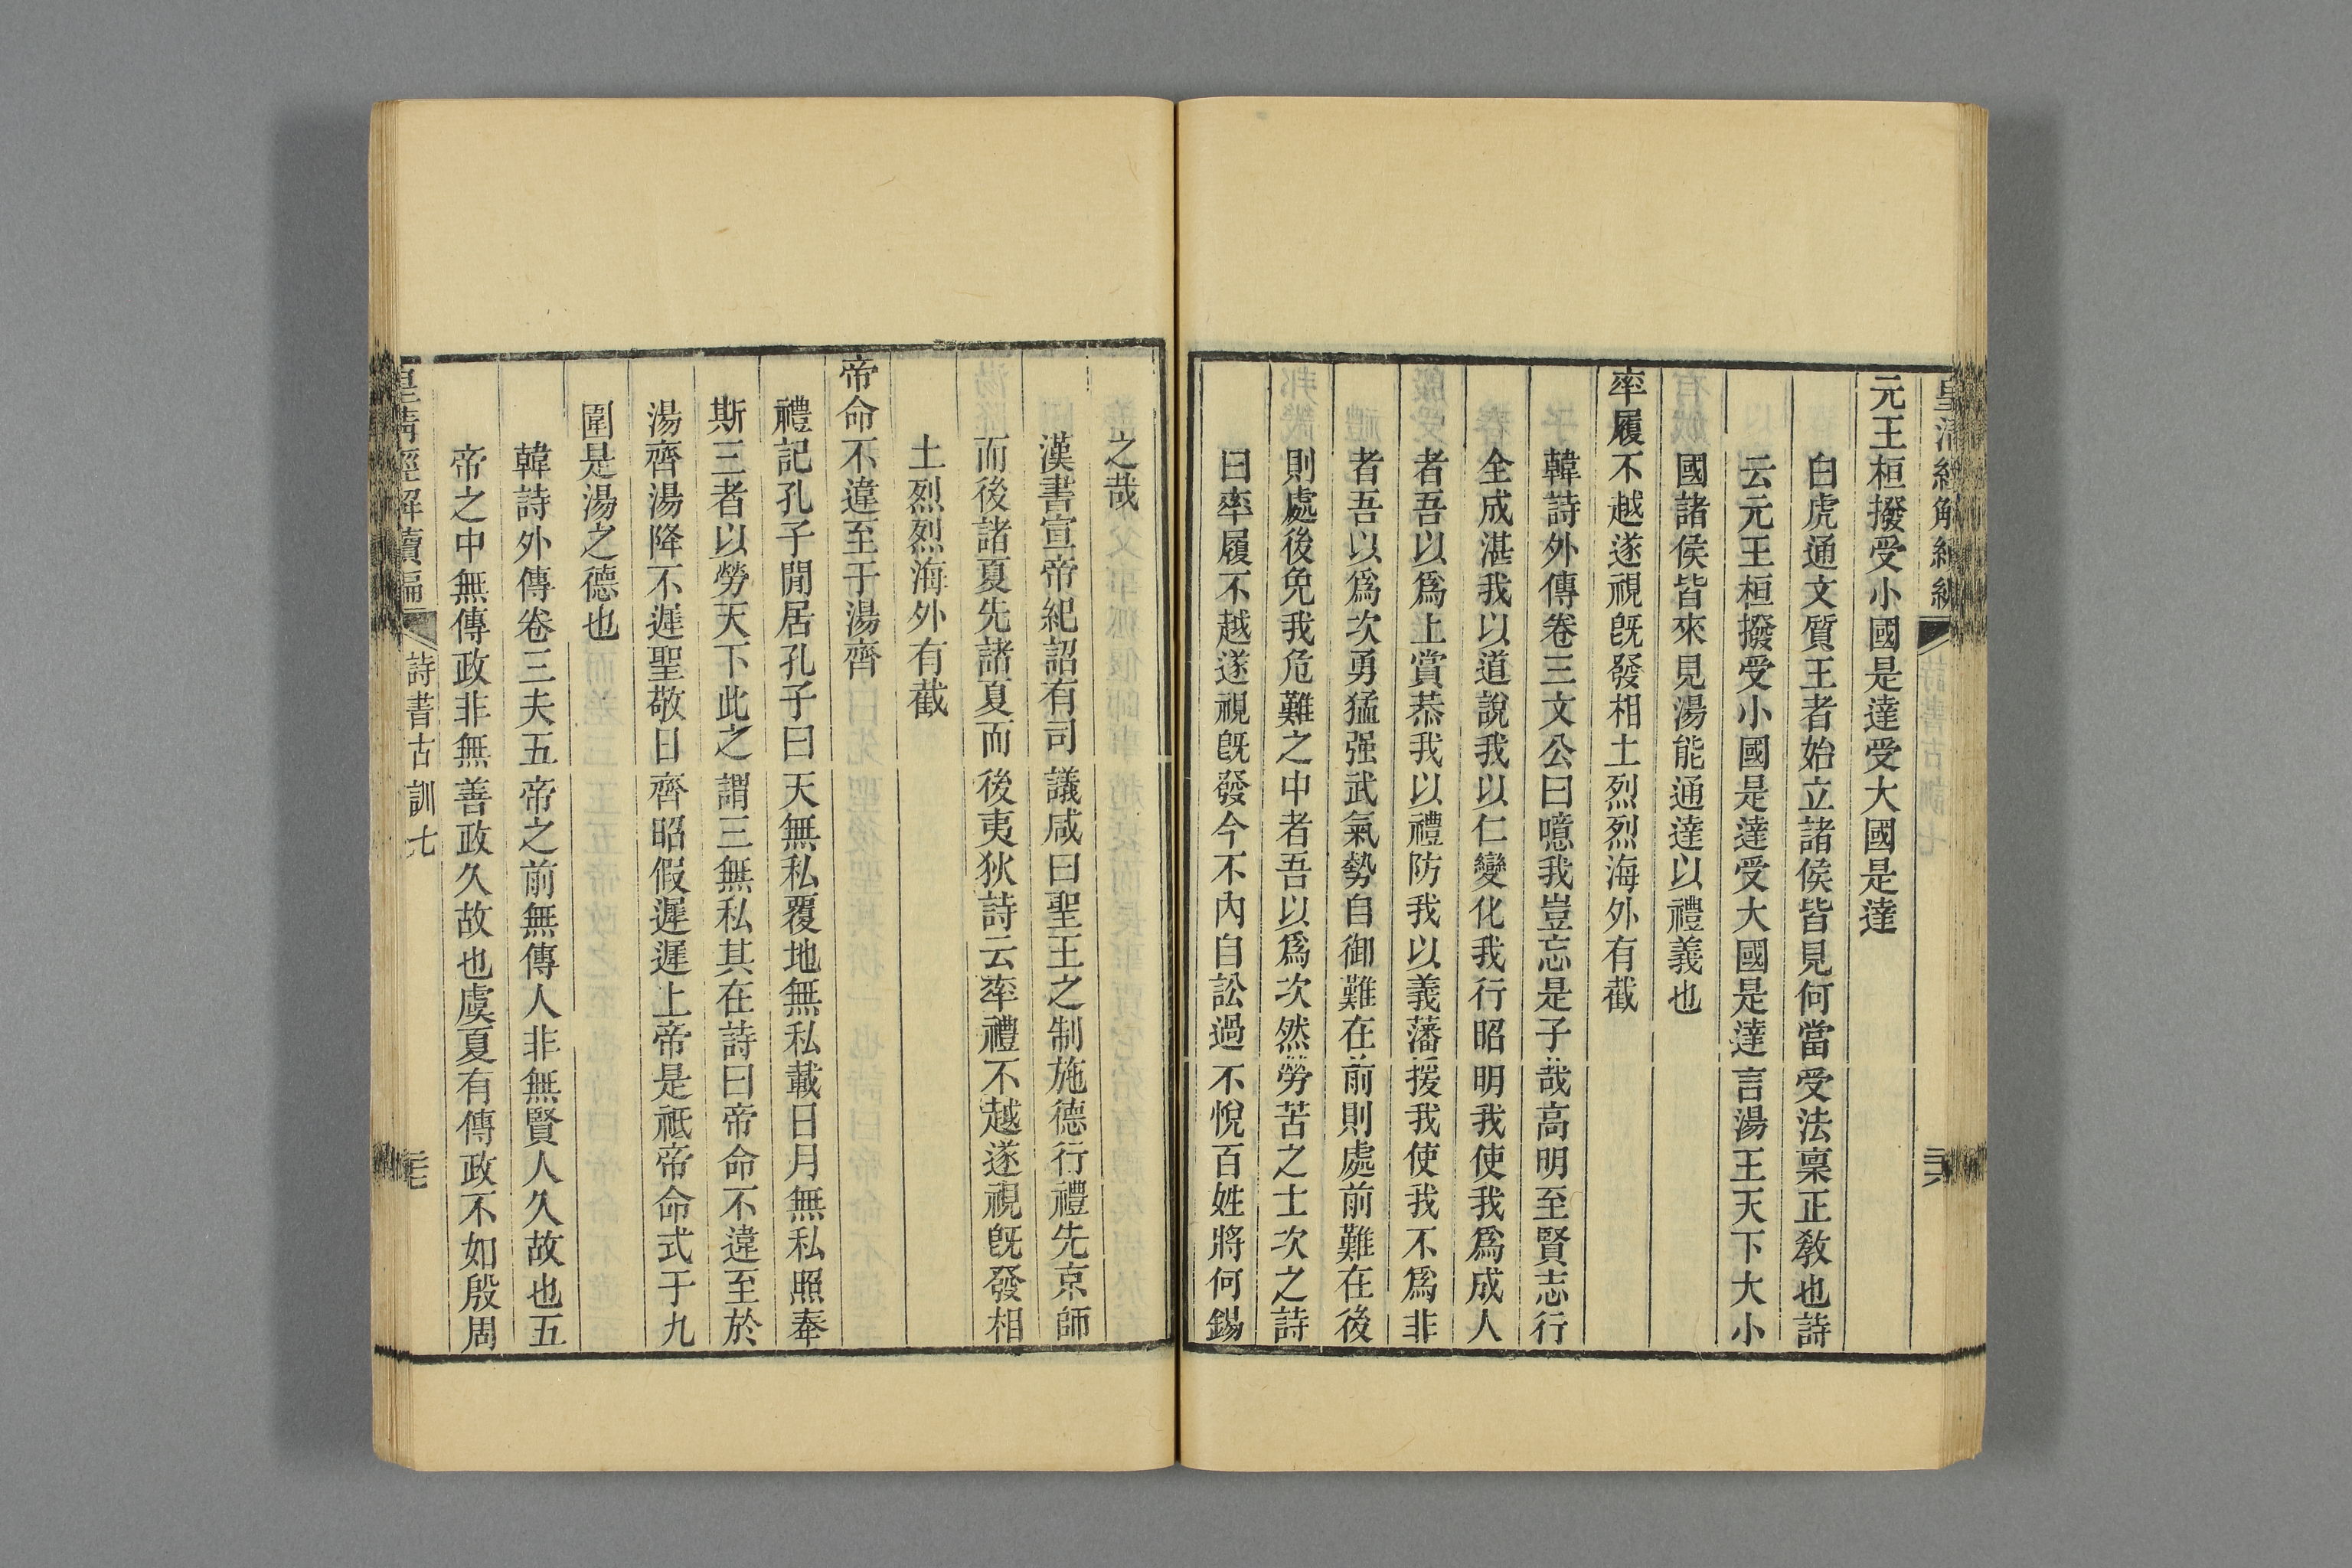 元王桓撥受小國是達受大國是達
白虎通文質王者始立諸侯皆見何當受法稟正敎也詩
云元王桓撥受小國是達受大國是達言湯王天下大小
國諸侯皆來見湯能通達以禮義也
率履不越遂視旣發相土烈烈海外有截
韓詩外傳卷三文公曰噫我豈忘是子哉高明至賢志行
全成湛我以道說我以仁變化我行昭明我使我爲成人
者吾以爲上賞恭我以禮防我以義藩援我使我不爲非
者吾以爲次勇猛强武氣勢自御難在前則處前難在後
則處後免我危難之中者吾以爲次然勞苦之士次之詩
曰率履不越遂視旣發今不內自訟過不悅百姓將何錫
之哉
漢書宣帝紀詔有司議咸曰聖王之制施德行禮先京師
而後諸夏先諸夏而後夷狄詩云率禮不越遂視旣發相
土烈烈海外有截
帝命不違至于湯齊
禮記孔子閒居孔子曰天無私覆地無私載日月無私照奉
斯三者以勞天下此之謂三無私其在詩曰帝命不違至於
湯齊湯降不遲聖敬日齊昭假遲遲上帝是祗帝命式于九
圍是湯之德也
韓詩外傳卷三夫五帝之前無傳人非無賢人久故也五
帝之中無傳政非無善政久故也虞夏有傳政不如殷周
皇清經解續編
詩書古訓七